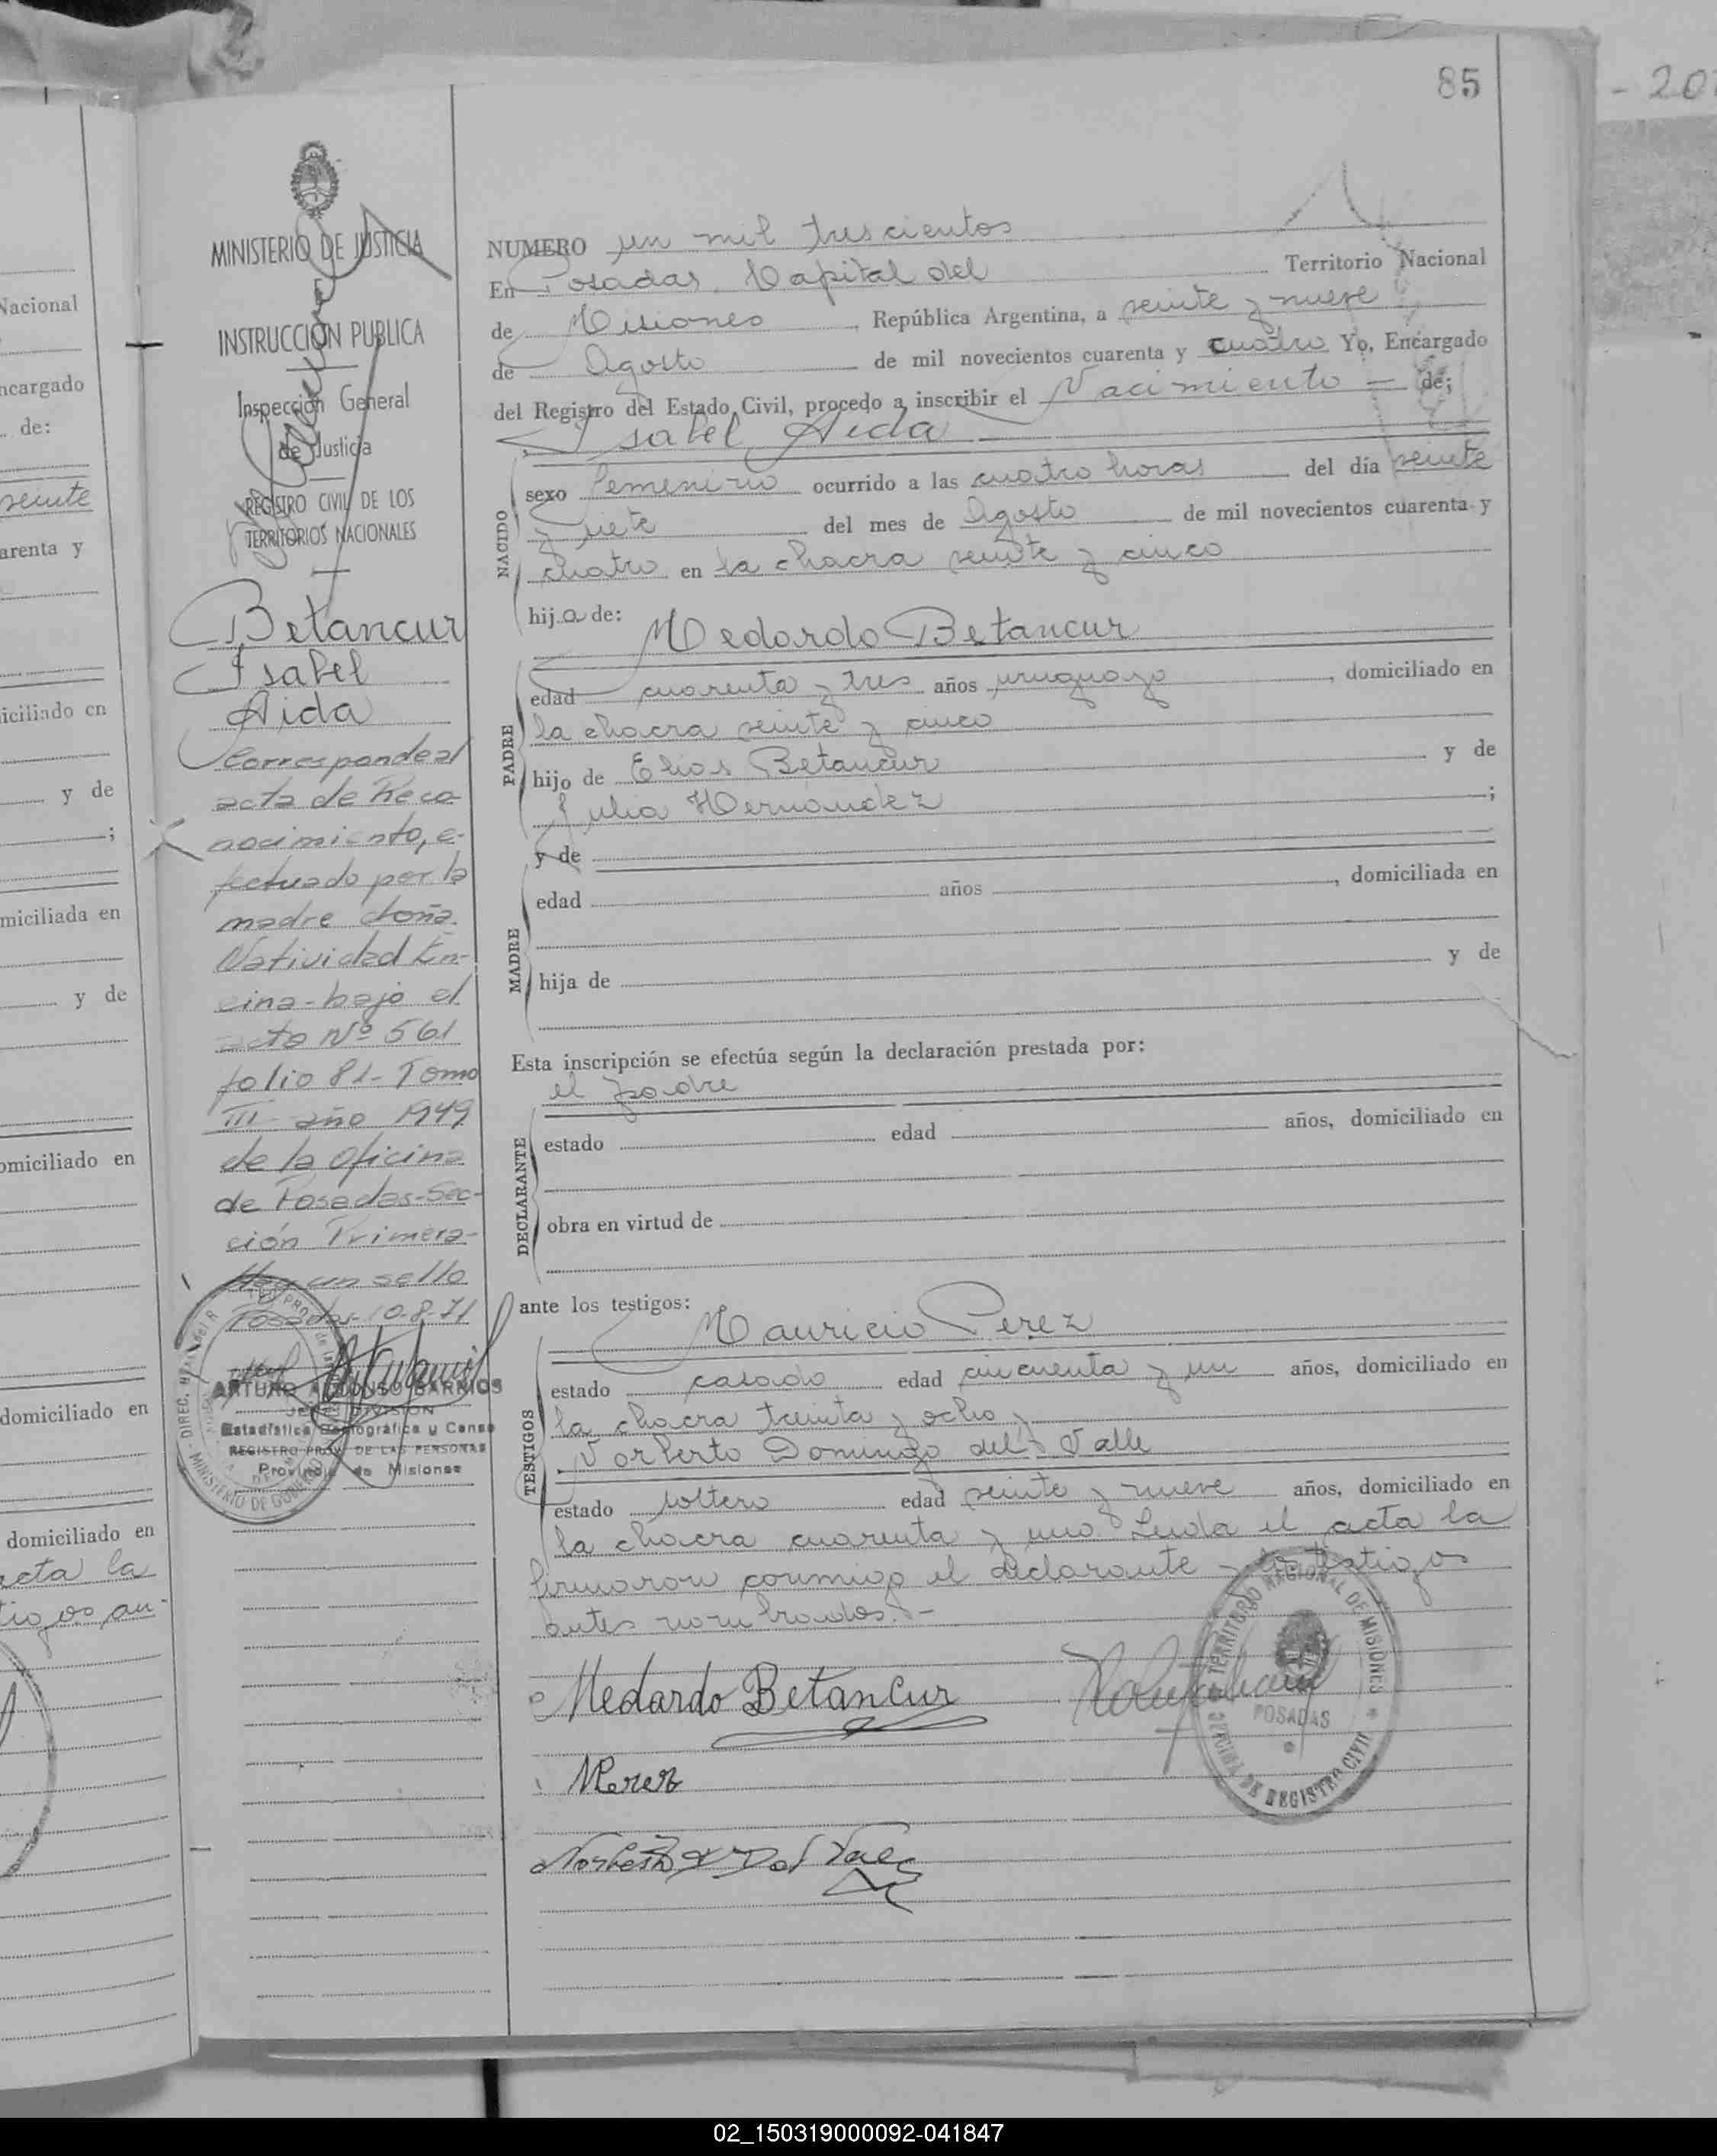 85
- 20
NUMERO un mil trescientos
En Posadas, Capital del Territorio Nacional
de Misiones, República Argentina, a veinte y nueve
de Agosto de mil novecientos cuarenta y cuatro Yo, Encargado
del Registro del Estado Civil, procedo a inscribir el Nacimiento — de;
Isabel Aida
NACIDO
sexo femenino ocurrido a las cuatro horas del día veinte
y siete del mes de Agosto de mil novecientos cuarenta y
cuatro en la chacra veinte y cinco
hija de:
Medardo Betancur
PADRE
edad cuarenta y tres años uruguayo, domiciliado en
la chacra veinte y cinco
hijo de Elias Betancur y de
Julia Hernandez;
y de
MADRE
edad años, domiciliada en
hija de y de
Esta inscripción se efectúa según la declaración prestada por:
el padre
DECLARANTE
estado edad años, domiciliado en
obra en virtud de
ante los testigos:
Mauricio Perez
TESTIGOS
estado casado edad cincuenta y un años, domiciliado en
la chacra treinta y ocho y
Norberto Domingo del Valle
estado soltero edad veinte y nueve años, domiciliado en
la chacra cuarenta y uno. Leida el acta la
firmaron conmigo el declarante y los testigos
antes nombrados.-
Medardo Betancur
MPerez
Norberto D Del Valle
OFICINA DE REGISTRO CIVIL TERRITORIO NACIONAL DE MISIONES
POSADAS
MINISTERIO DE JUSTICIA
INSTRUCCION PUBLICA
Inspección General
de Justicia
REGISTRO CIVIL DE LOS
TERRITORIOS NACIONALES
Betancur
Isabel
Aida
Corresponde al
acta de Reco-
nocimiento, e-
fectuado por la
madre doña
Natividad En-
cina-bajo el
acta Nº 561
folio 81- Tomo
III- año 1949
de la oficina
de Posadas-Sec-
ción Primera-
Hay un sello
Posadas-10-8-71
ARTURO ALFONSO BARRIOS
JEFE DIVISION
Estadística Demográfica y Censo
REGISTRO PROV. DE LAS PERSONAS
Provincia de Misiones
MINISTERIO DE GOBIERNO
Nacional
ncargado
de:
veinte
arenta y
iciliado en
y de
;
miciliada en
y de
omiciliado en
domiciliado en
domiciliado en
acta la
tigos an-
02_150319000092-041847